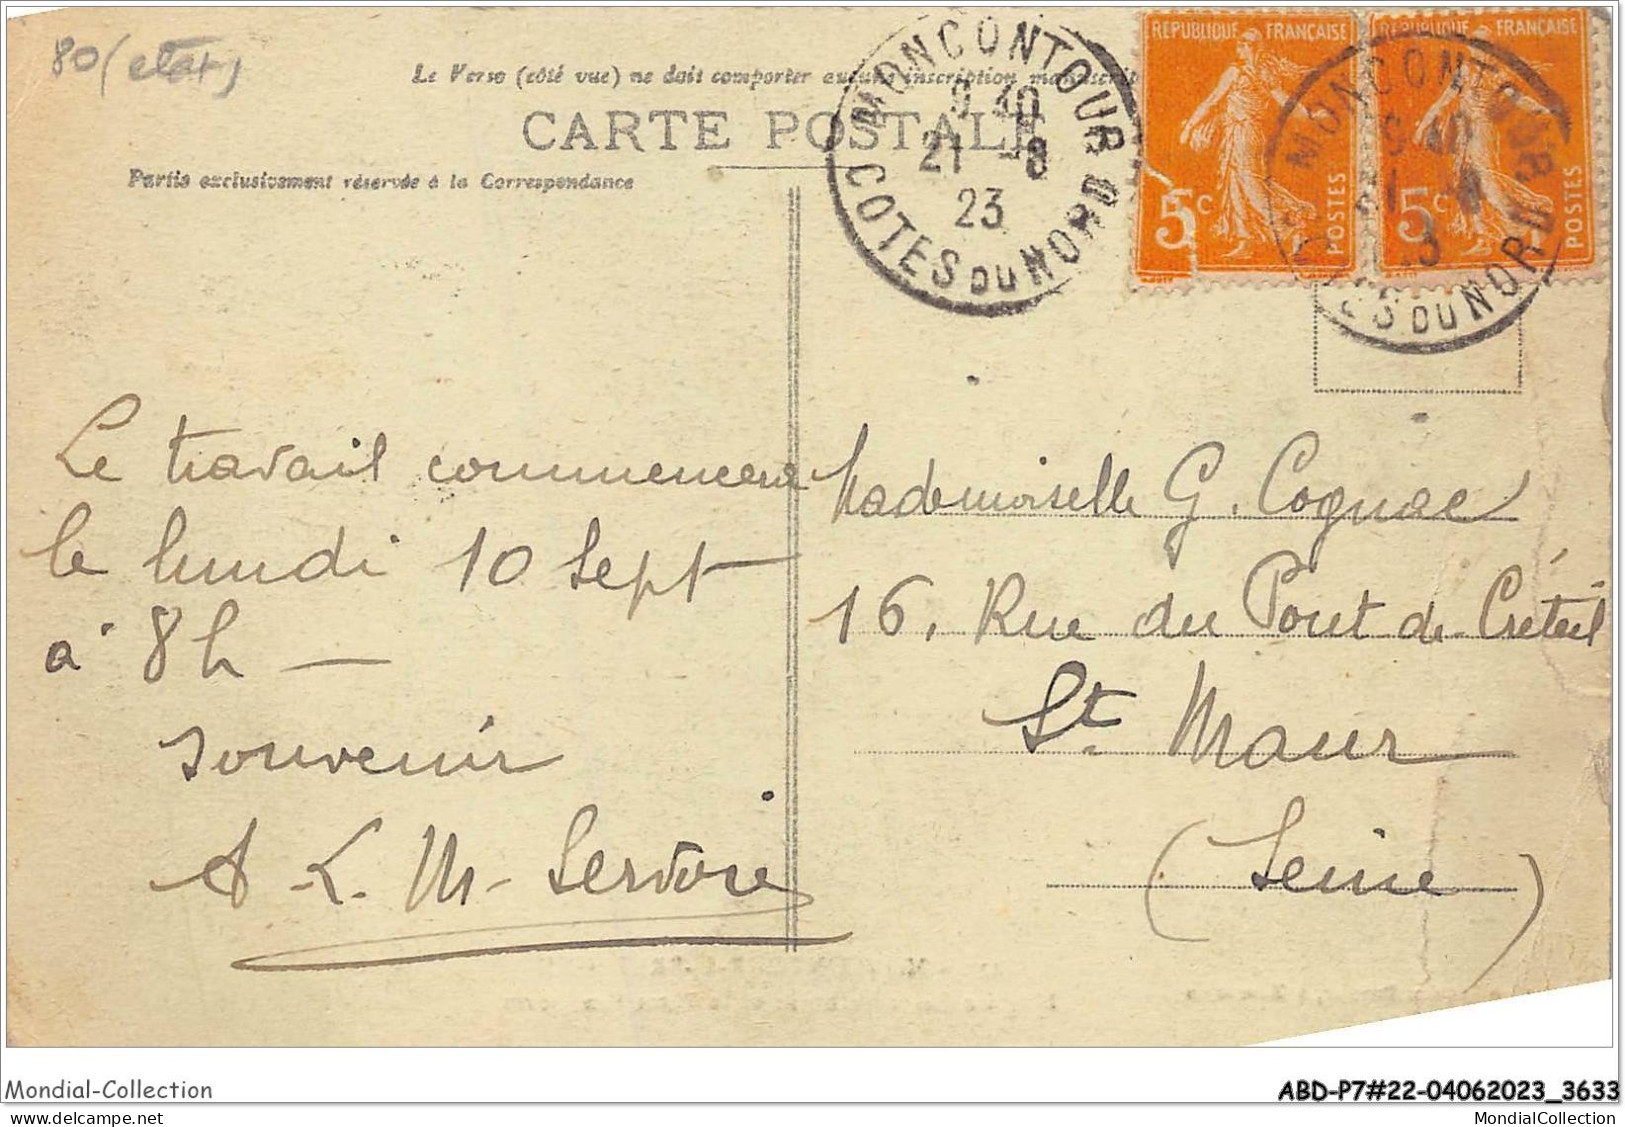 80 (etat)
Le Verso (côté vue) ne doit comporter aucune inscription manuscrit
CARTE POSTALE
Partie exclusivement réservée à la Correspondance
MONCONTOUR
9 30
21 -8
23
COTES DU NORD
REPUBLIQUE FRANÇAISE
5c
POSTES
REPUBLIQUE FRANÇAISE
5c
POSTES
MONCONTOUR
DU NORD
Le travail commencera
le lundi 10 Sept
à 8h —
souvenir
A. L. M. Servoise
Mademoiselle G. Cognac
16, Rue du Pont de Créteil
St. Maur
(Seine)
Mondial-Collection
delcampe.net
ABD-P7#22-04062023_3633
MondialCollection